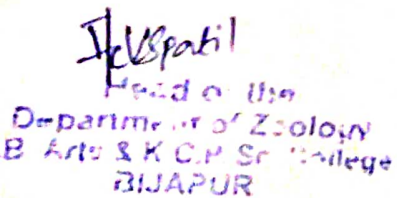 Head of the
Department of Zoology
B Arts & K.C.P. Sc. College
BIJAPUR